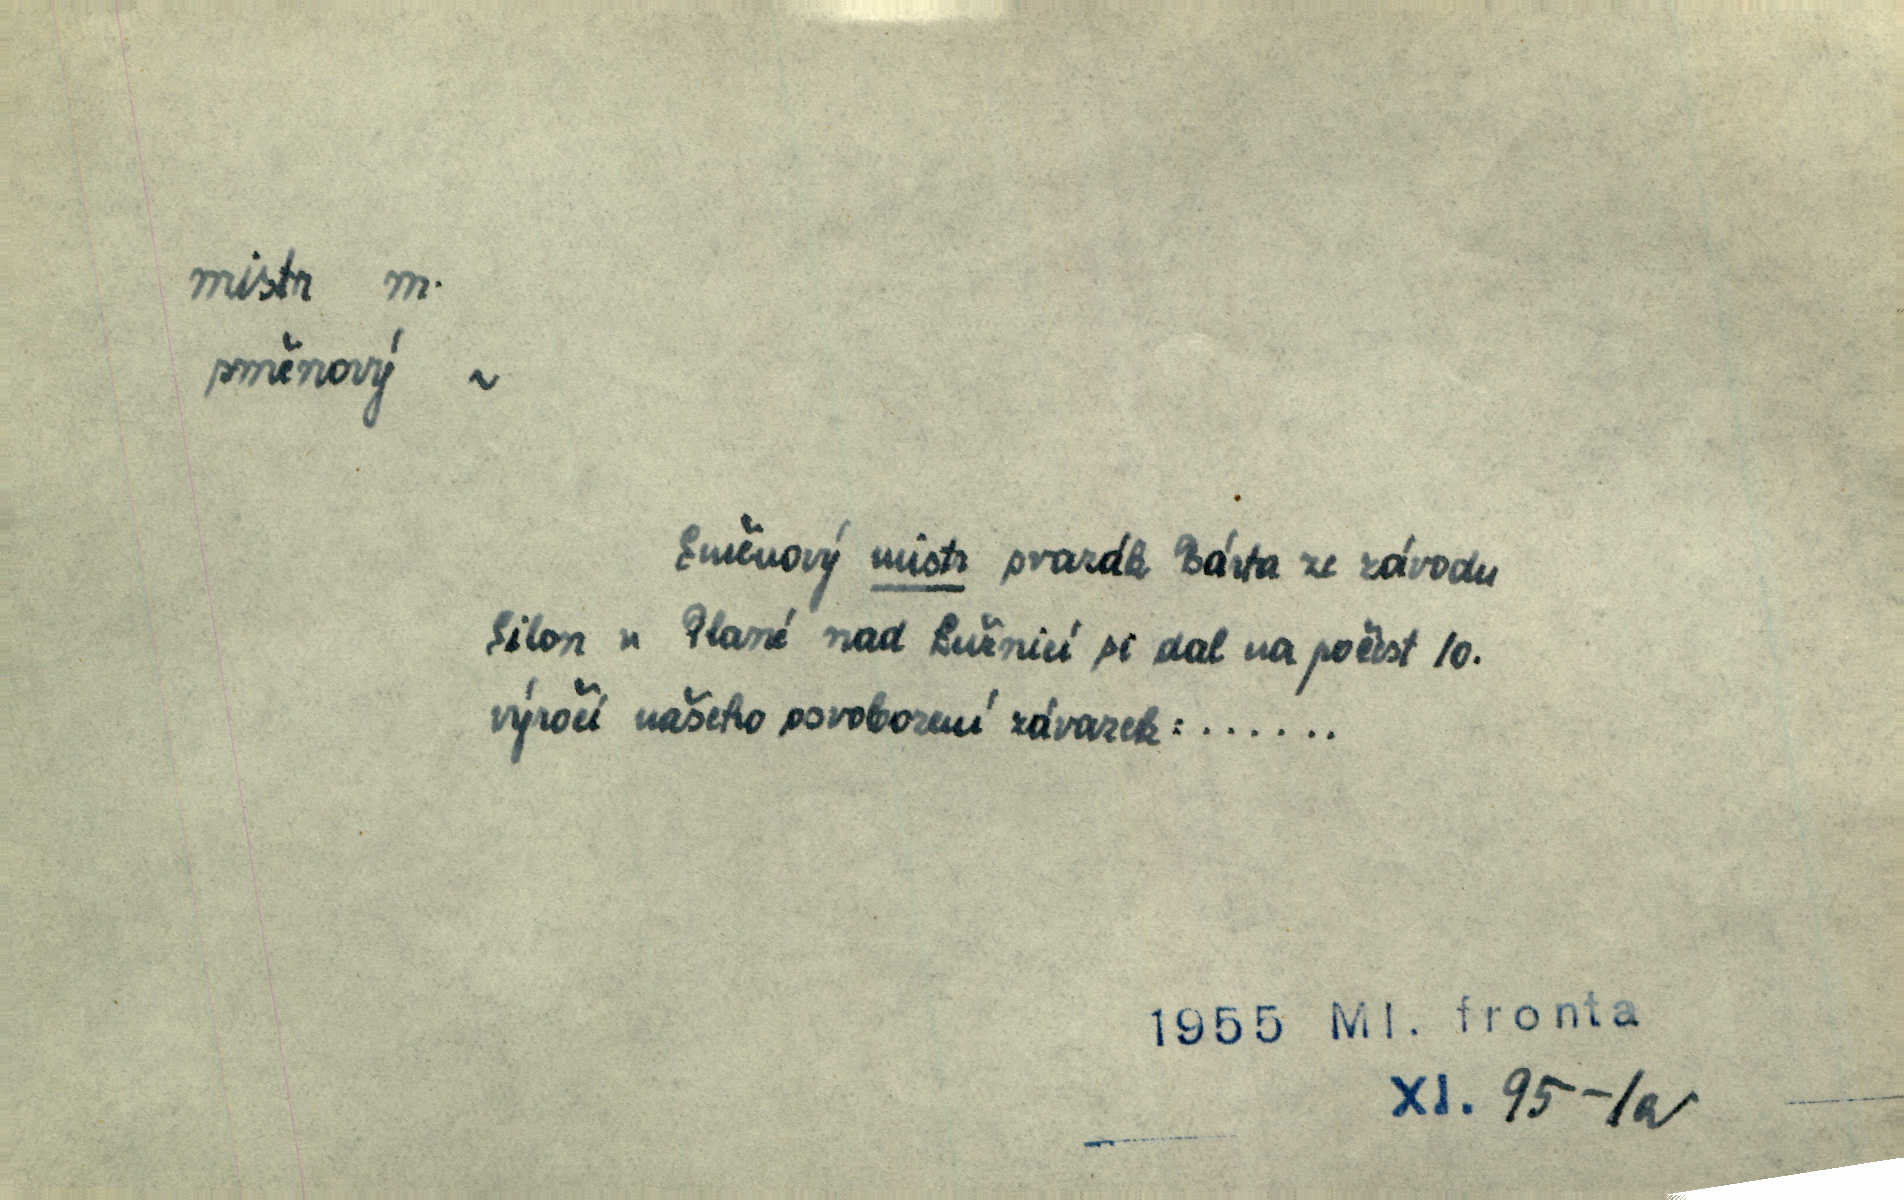 mistr m.
směnový ~
Směnový mistr svazák Bárta ze závodu
Silon v Plané nad Lužnicí si dal na počest 10.
výročí našeho osvobození závazek: . . . . . .
1955 Ml. fronta
XI. 95-1a